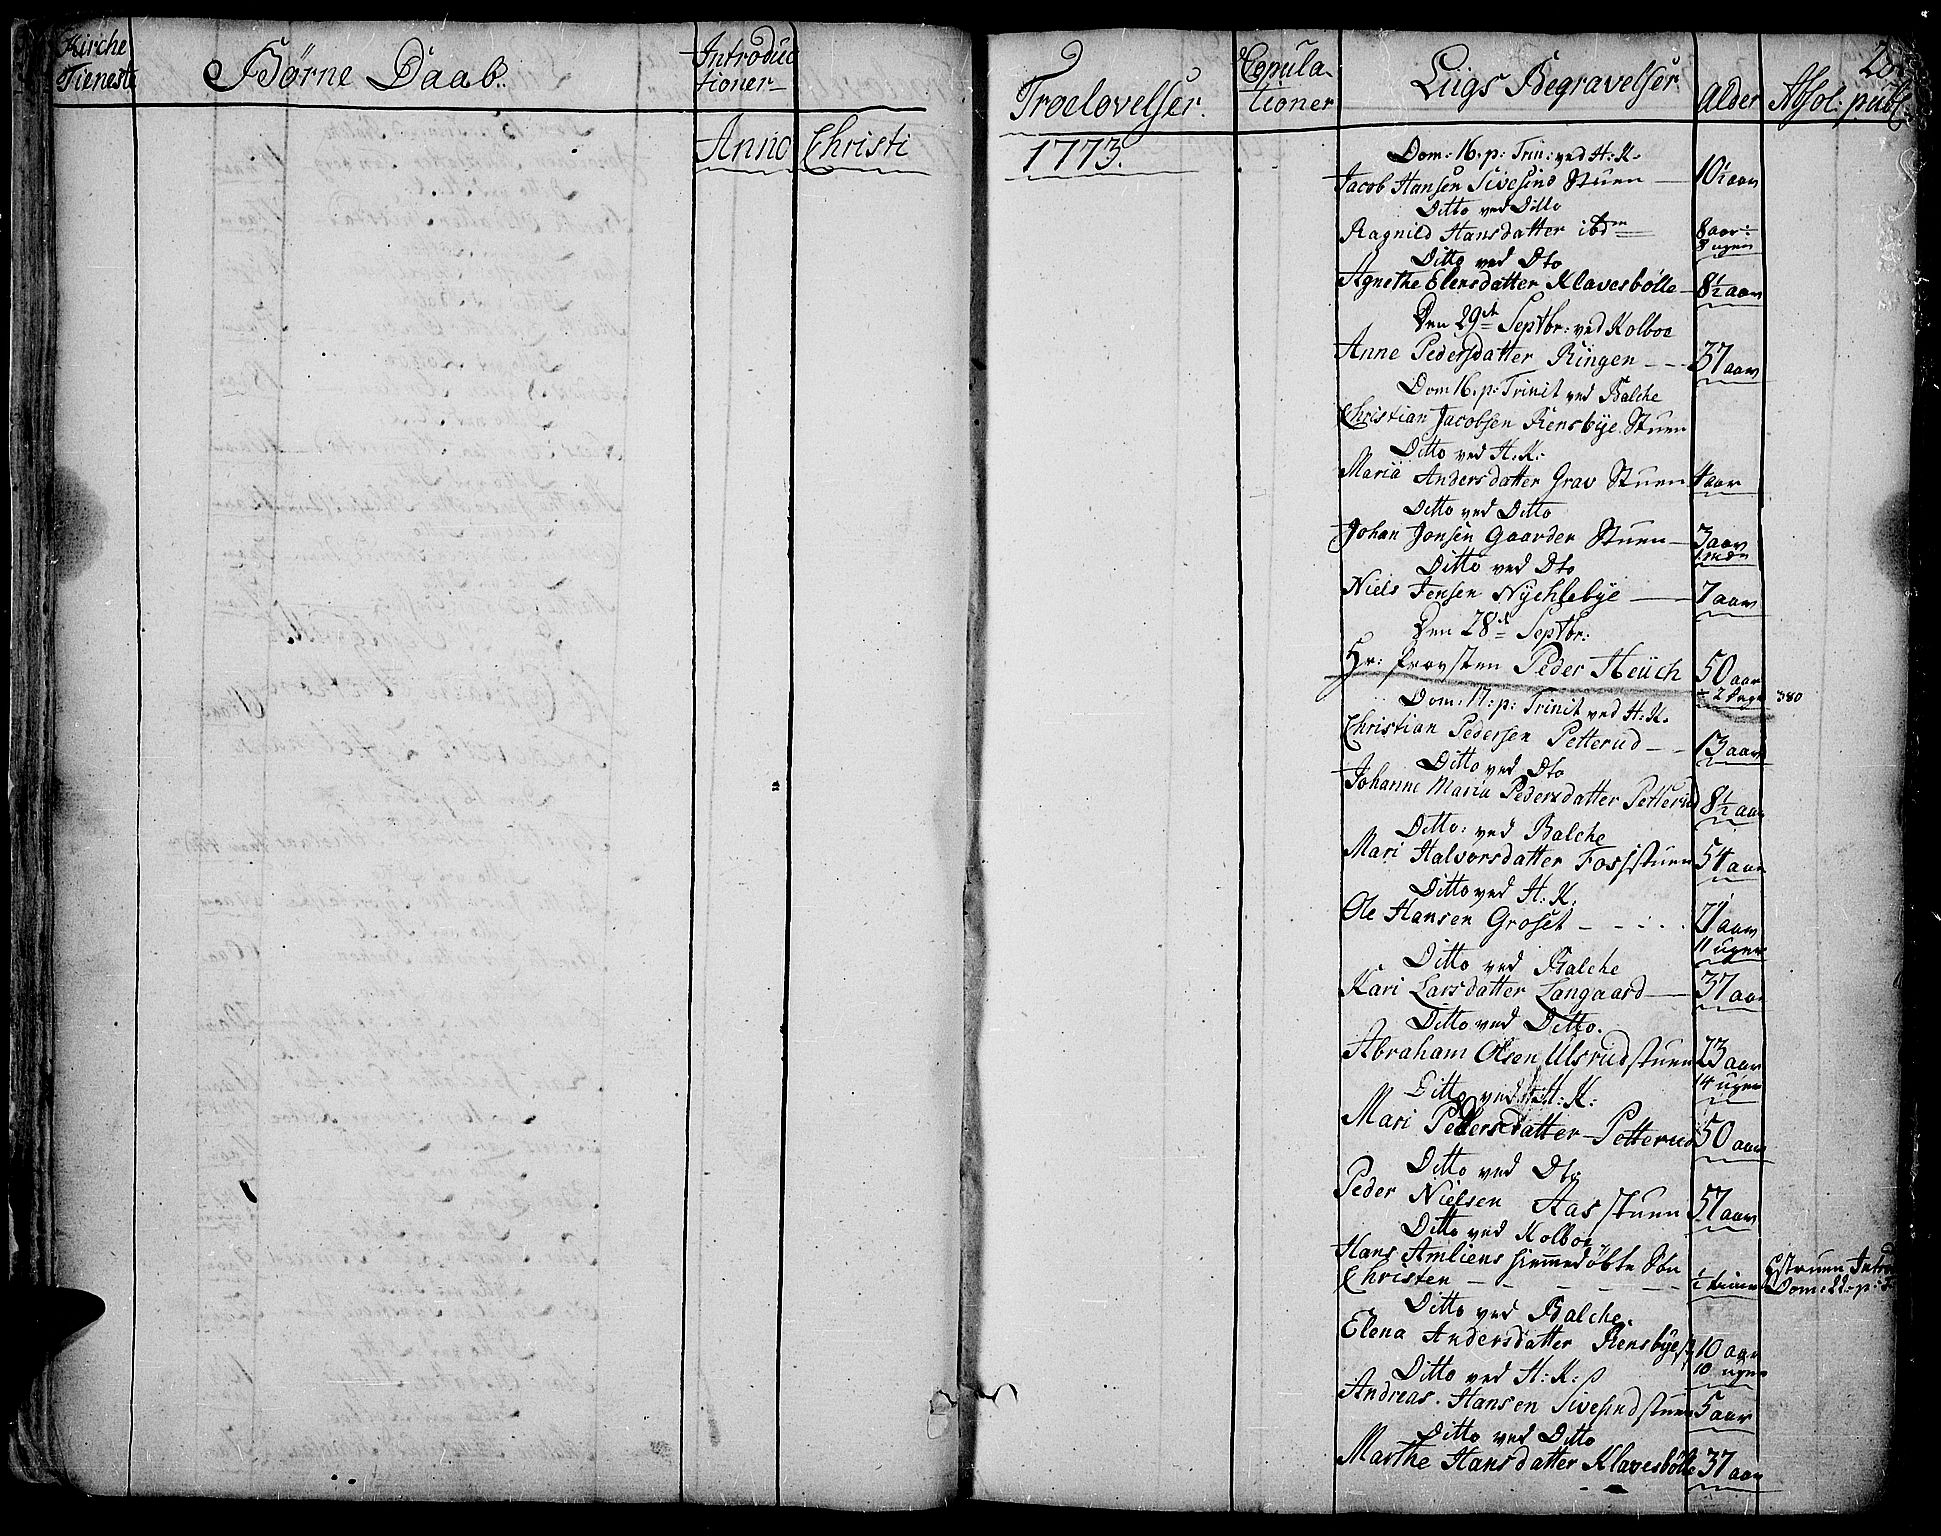 Kirche
Tieneste
Børne Daab.
Introduc
tioner
Anno Christi
Troelovelser.
1773.
Copula-
tioner
Liigs Begravelser
Alder
Absol: publ:
Dom: 16. p: Trin: ved H: K.
Jacob Hansen Sivesind Stuen — 10½ aar
Ditto ved Ditto
Ragnild Hansdatter ibdm 8 aar:
8 uger
Ditto ved Dto
Agnethe Elensdatter Klavesbølle — 8½ aar
Den 29de Septbr: ved Kolboe
Anne Pedersdatter Ringen - - - 37 aar
Dom 16. p: Trinit ved Balche
Christian Jacobsen Rensbye Stuen
Ditto ved H: K:
Maria Andersdatter Grav Stuen 4 aar
Ditto ved Ditto
Johan Jonsen Gaarder Stuen — 3 aar
Ditto ved Dto
Niels Jensen Nÿchlebye — 7 aar
Den 28de Septbr:
Hr: Provsten Peder Heüch 50 aar
÷ 2 Dage 380
Dom: 17: p: Trinit ved H: K.
Christian Pedersen Petterud - - 13 aar
Ditto ved Dto
Johanne Maria Pedersdatter Petterud 8½ aar
Ditto: ved Balche
Mari Halvorsdatter Fossstuen 54 aar
Ditto ved H: K:
Ole Hansen Groset - - - - - 71 aar
11 uger
Ditto ved Balche
Kari Larsdatter Langaard — 37 aar
Ditto ved Ditto.
Abraham Olsen Ulsrudstuen 23 aar
14 uger
Ditto ved H: K:
Mari Pedersdatter Petterud 50 aar
Ditto ved Dto
Peder Nielsen Aasstuen 57 aar
Ditto ved Kolboe
Hans Amliens hiemmedøbte Søn
Christen - - - - - ½ time
Dom: 22. p: T
Ditto ved Balche.
Elena Andersdatter Rensbye 10 aar
10 uger
Ditto ved H: K:
Andreas Hansen Sivesindstuen 5 aar
Ditto ved Ditto
Marthe Hansdatter Klavesbølle 37 aar